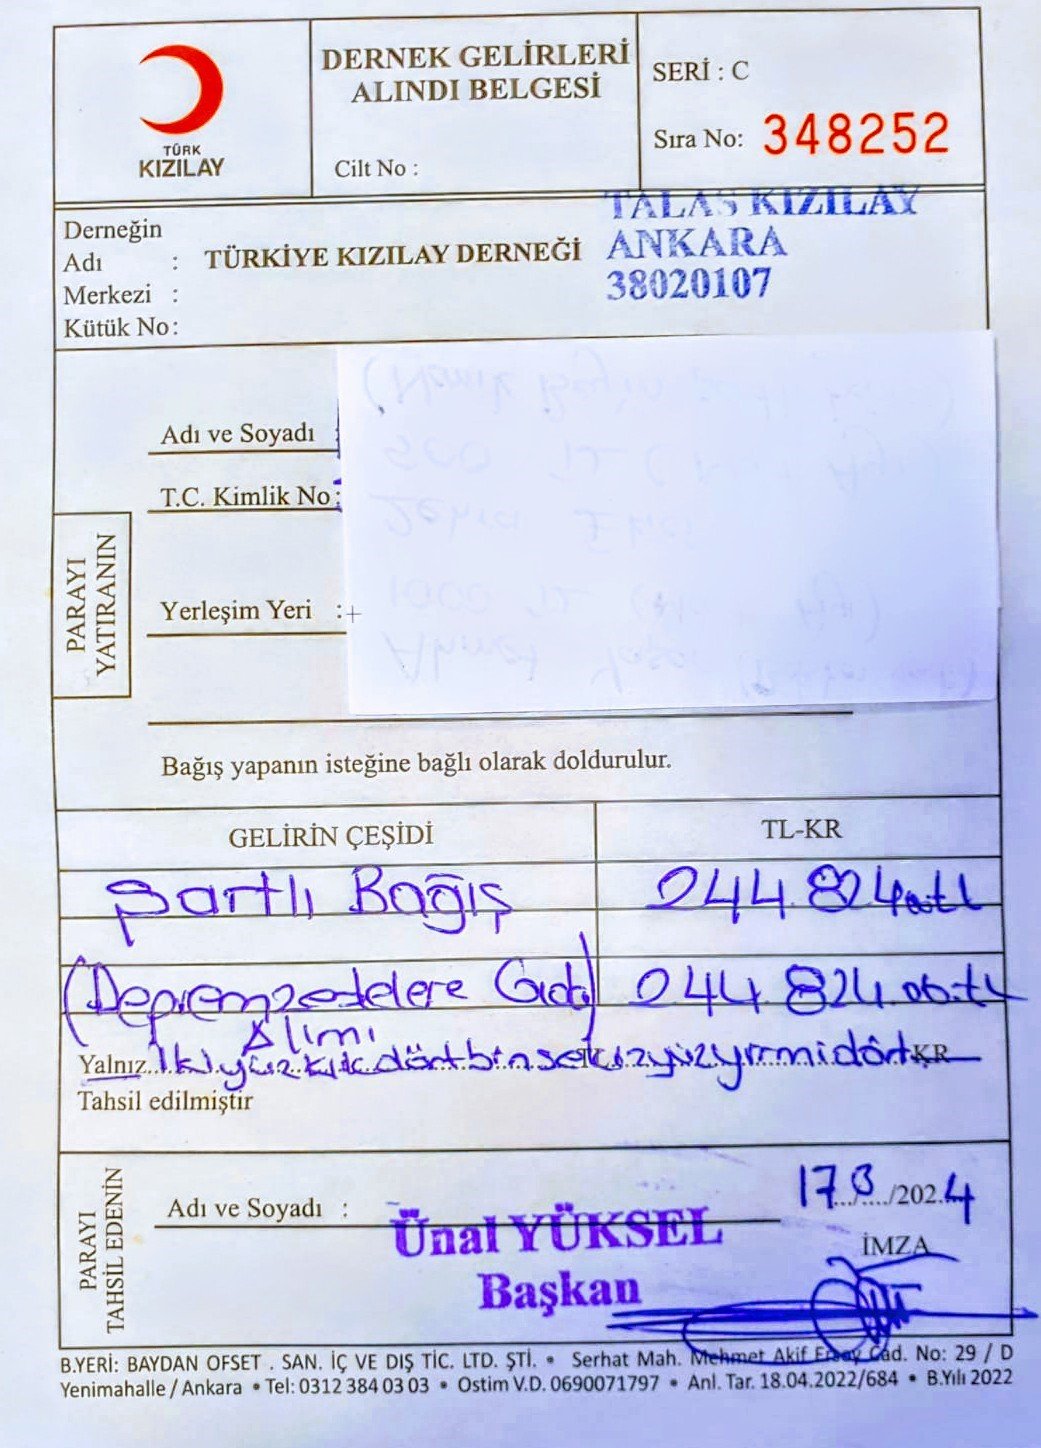 TÜRK
KIZILAY
DERNEK GELİRLERİ
ALINDI BELGESİ
Cilt No :
SERİ : C
Sıra No: 348252
TALAS KIZILAY
ANKARA
38020107
Derneğin
Adı : TÜRKİYE KIZILAY DERNEĞİ
Merkezi :
Kütük No:
PARAYI
YATIRANIN
Adı ve Soyadı :
T.C. Kimlik No :
Yerleşim Yeri :
Bağış yapanın isteğine bağlı olarak doldurulur.
GELİRİN ÇEŞİDİ TL-KR
Şartlı Bağış 244.824
(Depremzedelere Gıda 244.824.00.TL
Alımı
Yalnız İkiyüzkırkdörtbinsekizyüzyirmidört KR
Tahsil edilmiştir
PARAYI
TAHSİL EDENİN
Adı ve Soyadı :
17.3./2024
Ünal YÜKSEL
Başkan
İMZA
B.YERİ: BAYDAN OFSET . SAN. İÇ VE DIŞ TİC. LTD. ŞTİ. • Serhat Mah. Mehmet Akif Ersoy Cad. No: 29 / D
Yenimahalle / Ankara • Tel: 0312 384 03 03 • Ostim V.D. 0690071797 • Anl. Tar. 18.04.2022/684 • B.Yılı 2022